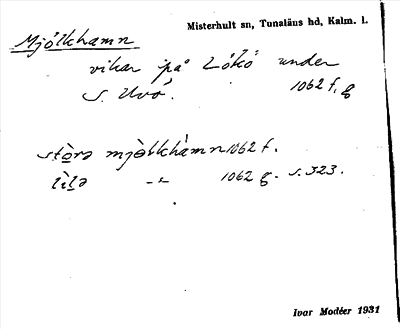 Misterhult sn, Tunaläns hd, Kalm. l.
Mjölkhamn
vikar på Lökö under
S. Uvö. 1062 f, g
stòrə mjö̀lkhàmn 1062 f.
lìlə –"– 1062 g. s. 323.
Ivar Modéer 1931